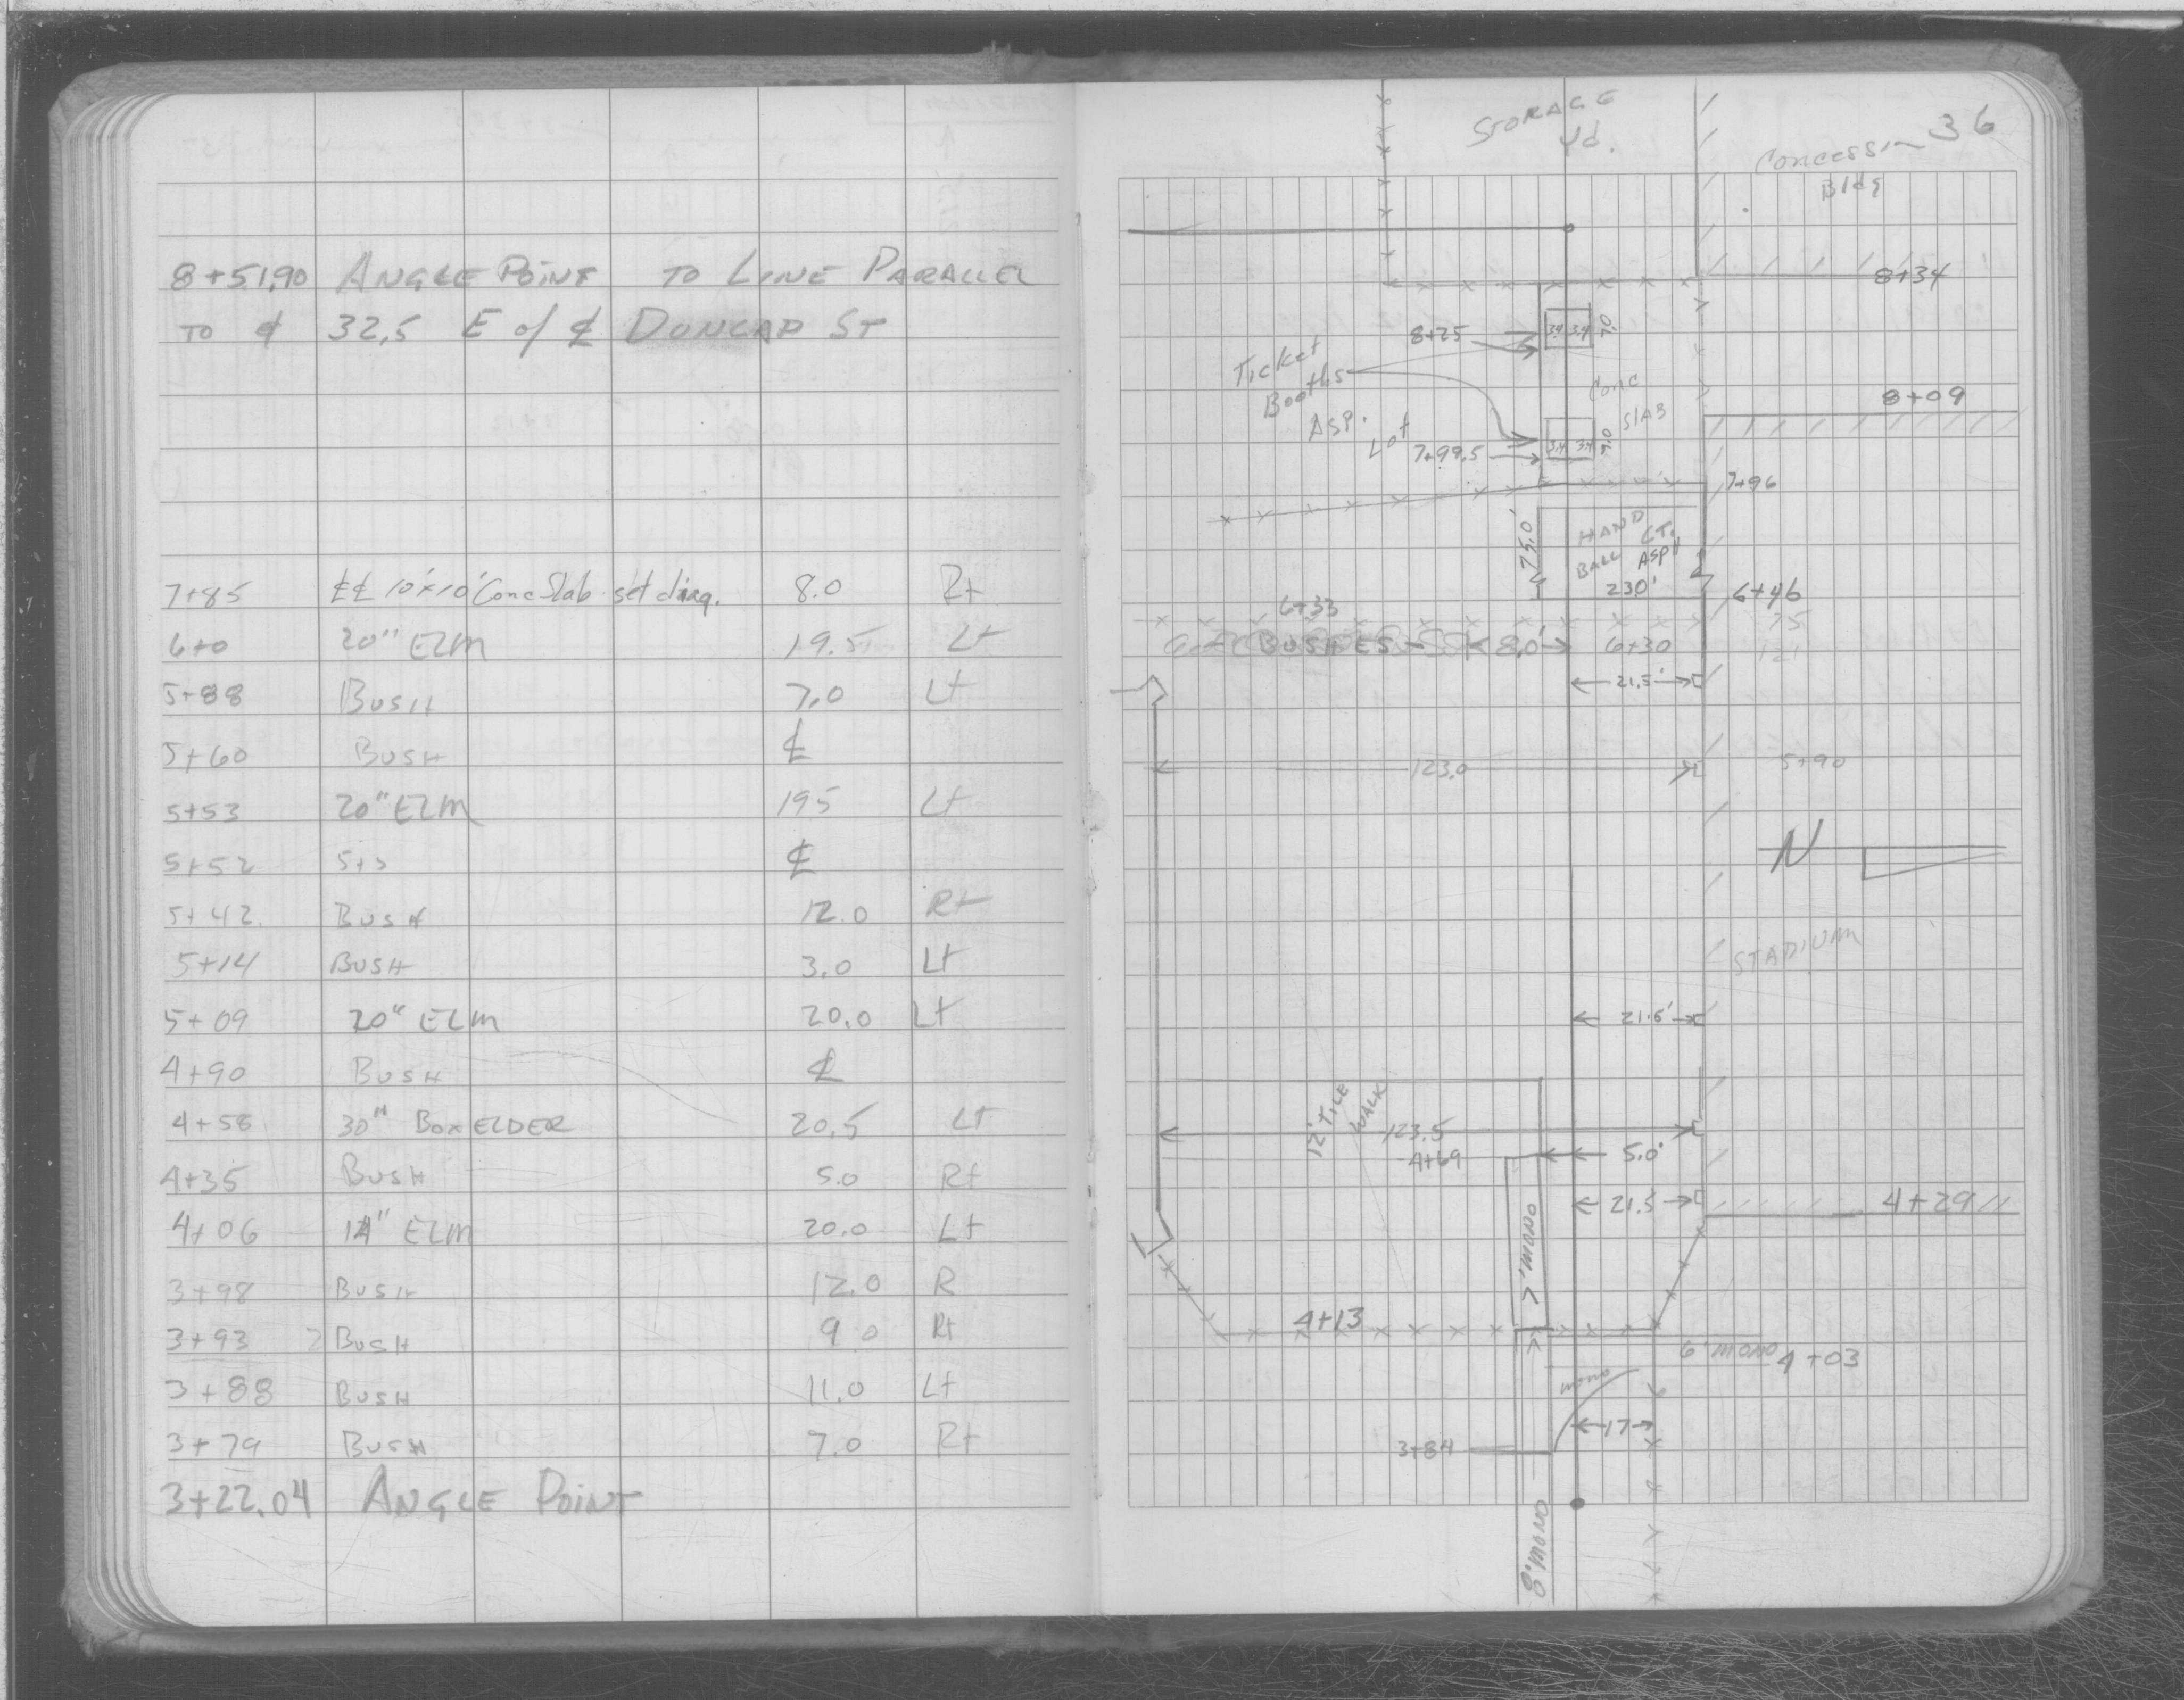 8+51.90 ANGLE POINT TO LINE PARALLEL
TO ¢ 32.5 E of ℄ DUNLAP ST
7+85 ℄℄ 10'x10' Conc Slab set diag. 8.0 Rt
6+0 20" ELM 19.5 Lt
5+88 BUSH 7.0 Lt
5+60 BUSH ℄
5+53 20" ELM 195 Lt
5+52 ℄
5+42 BUSH 12.0 Rt
5+14 BUSH 3.0 Lt
5+09 20" ELM 20.0 Lt
4+90 BUSH ℄
4+58 30" BOX ELDER 20.5 Lt
4+35 BUSH 5.0 Rt
4+06 14" ELM 20.0 Lt
3+98 BUSH 12.0 R
3+93 2 BUSH 9.0 Rt
3+88 BUSH 11.0 Lt
3+79 BUSH 7.0 Rt
3+22.04 ANGLE POINT
36
STORAGE
Yd.
Concession
Bldg
8+34
8+25
3.4 3.4
7.0
Ticket
Booths
Conc
SlAB
8+09
ASP.
Lot
7+99.5
3.4 3.4
7.0
7+96
75.0'
HAND
BALL CT.
ASPH
230'
6+33
6+46
75
BUSHES
8.0'
6+30
121
21.5'
123.0
5+90
N
STADIUM
21.5'
12' TILE
WALK
123.5
4+69
5.0'
21.5
4+29
7' MONO
4+13
6' MONO
4+03
mono
17
3+84
8' MONO